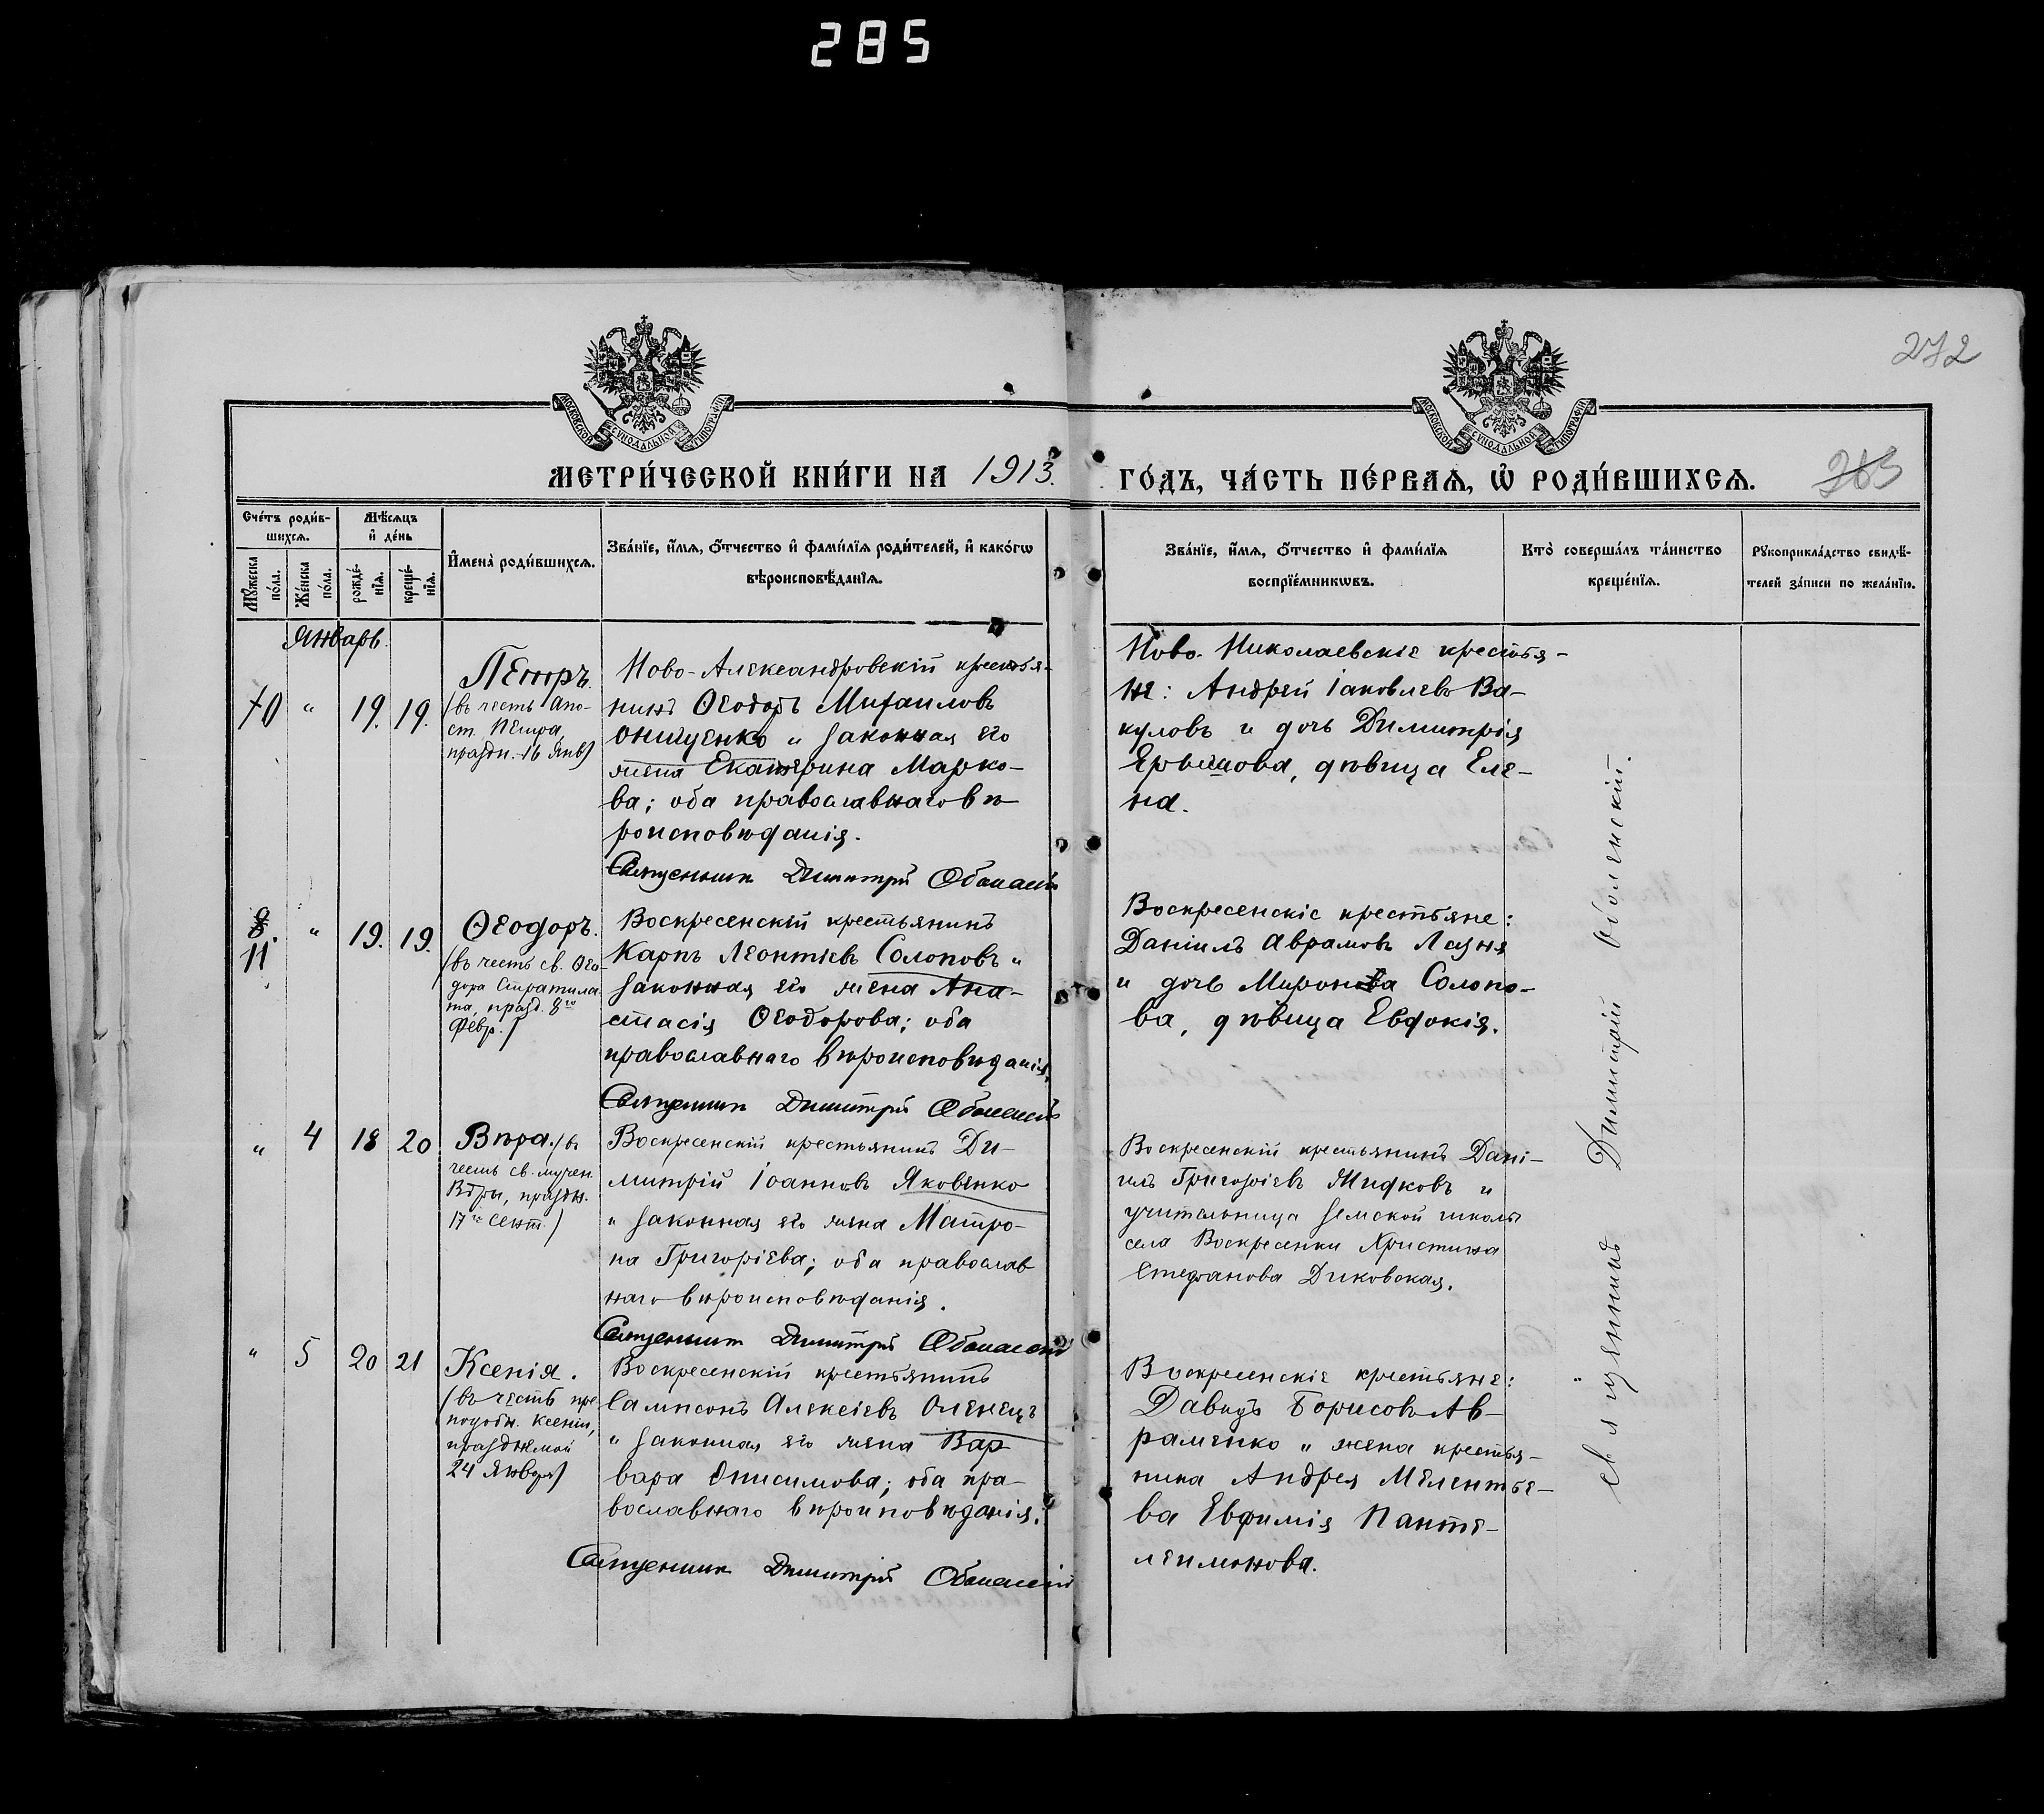 285
272
МОСКОВСКОЙ СѴНОДАЛЬНОЙ ТИПОГРАФІИ
МОСКОВСКОЙ СѴНОДАЛЬНОЙ ТИПОГРАФІИ
МЕТРИ́ЧЕСКОЙ КНИ́ГИ НА 1913.
ГО́ДЪ, ЧА́СТЬ ПЕ́РВАѦ, Ѡ҆ РОДИ́ВШИХСѦ.
Сче́тъ роди́в-
шихсѧ.
Мѣ́сѧцъ
и҆ де́нь
Мꙋ́жеска
по́ла.
Же́нска
по́ла.
рожде́-
нїѧ.
креще́-
нїѧ.
И҆мена̀ роди́вшихсѧ.
Зва́нїе, и҆́мѧ, ѻ҆́тчество и҆ фами́лїѧ роди́телей, и҆ како́гѡ
вѣроисповѣ́данїѧ.
Зва́нїе, и҆́мѧ, ѻ҆́тчество и҆ фами́лїѧ
воспрїе́мникѡвъ.
Кто̀ соверша́лъ та́инство
креще́нїѧ.
Рꙋкоприкла́дство свидѣ́-
телей за́писи по жела́нїю.
Январь
10 " 19. 19.
Петръ.
(въ честь Апо-
ст. Петра,
праздн. 16 Янв)
Ново-Александровскій крестья-
нинъ Ѳеодоръ Михаиловъ
Онищенко и законная его
жена Екатерина Марко-
ва; оба православнаго вѣ-
роисповѣданія.
Священникъ Димитрій Оболенскій
Ново-Николаевскіе крестья-
не: Андрей Іаковлевъ Ва-
куловъ и дочь Димитрія
Ерышова, дѣвица Еле-
на.
11 " 19. 19.
Ѳеодоръ.
(въ честь св. Ѳео-
дора Стратила-
та, празд. 8го
Февр.)
Воскресенскій крестьянинъ
Карпъ Леонтіевъ Солоповъ и
законная его жена Ана-
стасія Ѳеодорова; оба
православнаго вѣроисповѣданія.
Священникъ Димитрій Оболенскій
Воскресенскіе крестьяне:
Даніилъ Аврамовъ Лазня
и дочь Миронова Солопо-
ва, дѣвица Евдокія.
" 4 18 20
Вѣра. (въ
честь св. мучен.
Вѣры, праздн.
17го Сент.)
Воскресенскій крестьянинъ Ди-
митрій Іоанновъ Яковенко
и законная его жена Матро-
на Григоріева; оба православ
наго вѣроисповѣданія.
Священникъ Димитрій Оболенскій
Воскресенскій крестьянинъ Дані-
илъ Григоріевъ Жидковъ и
учительница земской школы
села Воскресенки Христина
Стефанова Диковская.
" 5 20 21
Ксенія.
(въ честь пре
подобн. Ксеніи,
празднуемой
24 Января)
Воскресенскій крестьянинъ
Сампсонъ Алексіевъ Оленецъ
и законная его жена Вар
вара Онисимова; оба пра-
вославнаго вѣроисповѣданія.
Священникъ Димитрій Оболенскій
Воскресенскіе крестьяне:
Давидъ Борисовъ Ав-
раменко и жена крестья-
нина Андрея Мелентье-
ва Евфимія Панте-
леимонова.
Священникъ Димитрій Оболенскій.